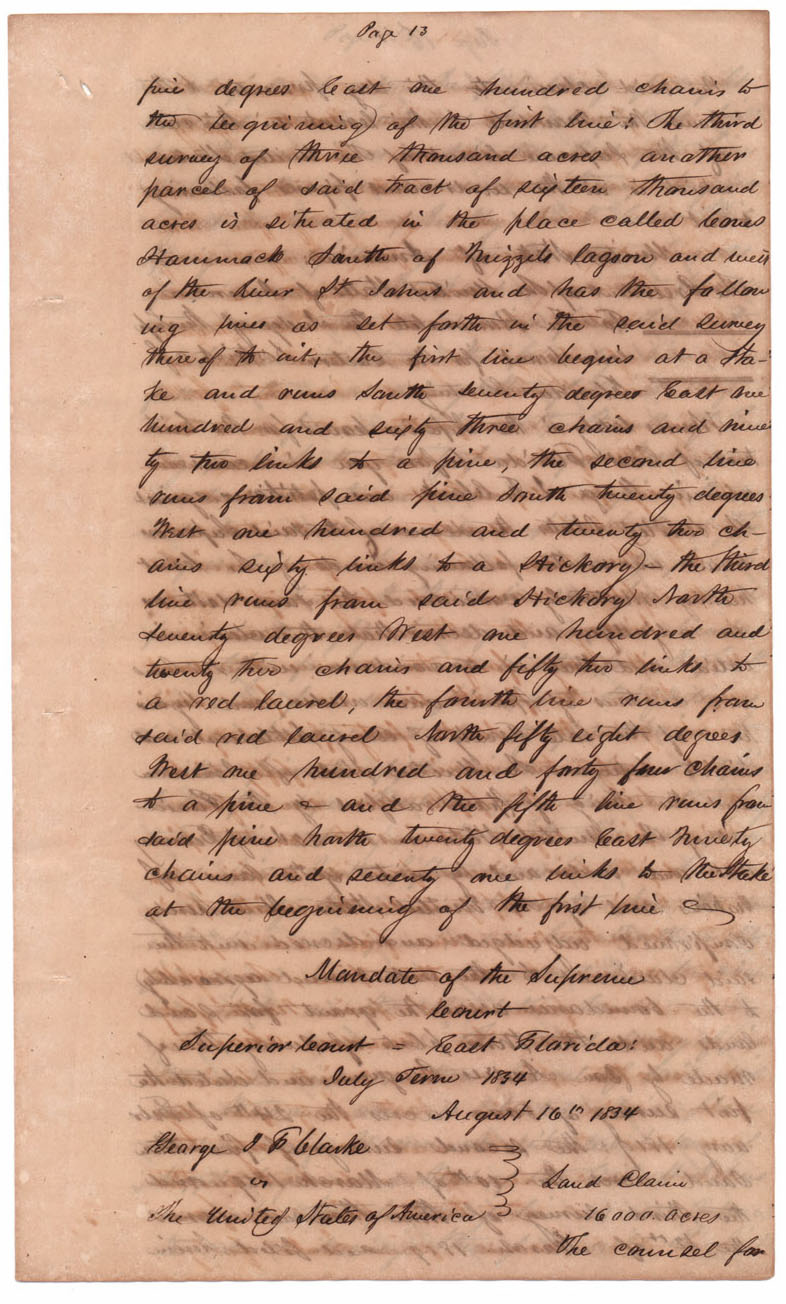 Page 13
five degrees East one hundred chains to
the beginning of the first line: The third
survey of three thousand acres another
parcel of said tract of sixteen thousand
acres is situated in the place called Cones
Hammack South of Mizzels lagoon and west
of the river St Johns and has the follow
ing lines as set forth in the said survey
thereof to wit, the first line begins at a Sta-
ke and runs South seventy degrees East one
hundred and sixty three chains and nine
ty two links to a pine, the second line
runs from said pine South twenty degrees
West one hundred and twenty two ch-
ains sixty links to a Hickory - the third
line runs from said Hickory North
seventy degrees West one hundred and
twenty two chains and fifty two links to
a red laurel, the fourth line runs from
said red laurel North fifty eight degrees
West one hundred and forty four chains
to a pine & and the fifth line runs from
said pine North twenty degrees East Ninety
chains and seventy one links to the Stake
at the beginning of the first line
Mandate of the Supreme
Court
Superior Court = East Florida:
July Term 1834
August 16th 1834
George J F Clarke
vs
Land Claim
The United States of America
16000 acres
The counsel for